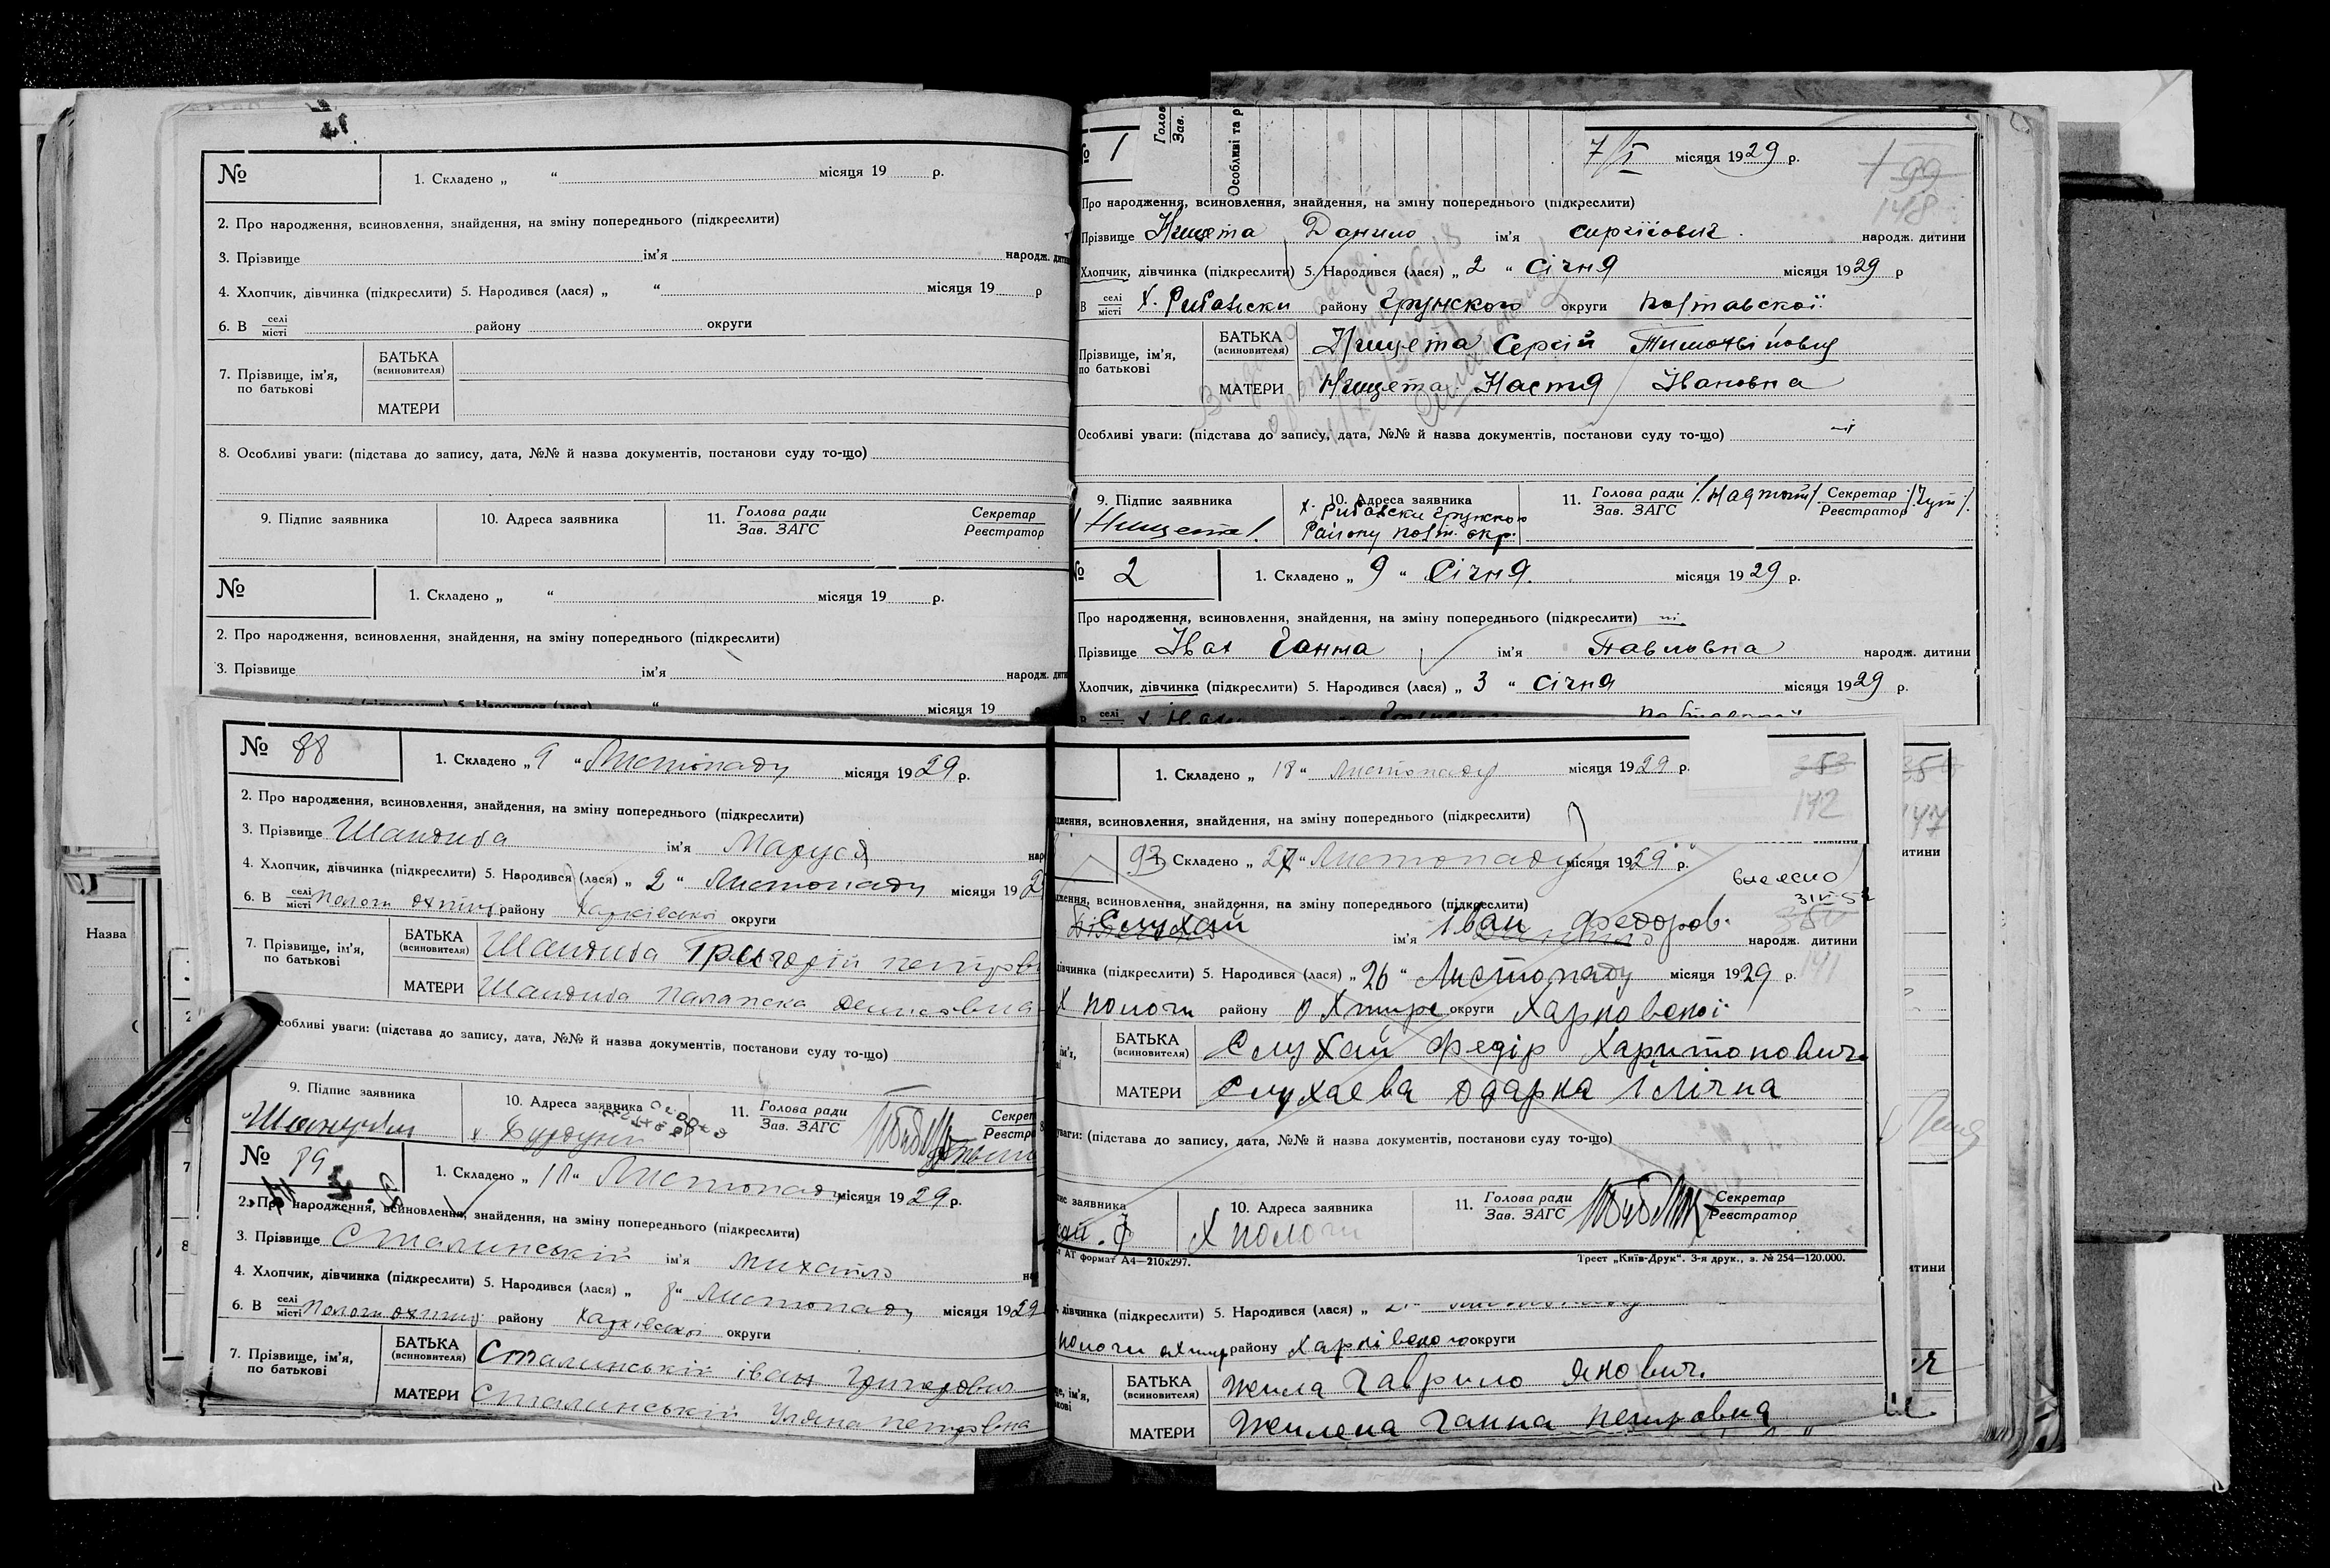 №
1. Складено „ “ місяця 19 р.
2. Про народження, всиновлення, знайдення, на зміну попереднього (підкреслити)
3. Прізвище ім’я народж. дити
4. Хлопчик, дівчинка (підкреслити) 5. Народився (лася) „ “ місяця 19 р
6. В селі місті району округи
7. Прізвище, ім’я, по батькові
БАТЬКА (всиновителя)
МАТЕРИ
8. Особливі уваги: (підстава до запису, дата, №№ й назва документів, постанови суду то-що)
9. Підпис заявника 10. Адреса заявника 11. Голова ради Зав. ЗАГС Секретар Реєстратор
№
1. Складено „ “ місяця 19 р.
2. Про народження, всиновлення, знайдення, на зміну попереднього (підкреслити)
3. Прізвище ім’я народж. дити
місяця 19
№ 88
1. Складено „ 9 “ Листопаду місяця 1929 р.
2. Про народження, всиновлення, знайдення, на зміну попереднього (підкреслити)
3. Прізвище Шандиба ім’я Маруся
4. Хлопчик, дівчинка (підкреслити) 5. Народився (лася) „ 2 “ Листопаду місяця 19 2
6. В селі місті Пологи охтир району Харківської округи
7. Прізвище, ім’я, по батькові
БАТЬКА (всиновителя) Шандиба Григорій петров
МАТЕРИ Шандиба Палажка Денисовна
собливі уваги: (підстава до запису, дата, №№ й назва документів, постанови суду то-що)
9. Підпис заявника 10. Адреса заявника 11. Голова ради Зав. ЗАГС Секрет Реєстра
№ 89
1. Складено „ “ Листопаду місяця 1929 р.
2. Про народження, всиновлення, знайдення, на зміну попереднього (підкреслити)
3. Прізвище Сталинській ім’я Михайло
4. Хлопчик, дівчинка (підкреслити) 5. Народився (лася) „ 8 “ Листопаду місяця 1929
6. В селі місті Пологи охтир району Харківської округи
7. Прізвище, ім’я, по батькові
БАТЬКА (всиновителя) Сталинській іван Григорович
МАТЕРИ Сталинській Уляна петровна
Голов
Зав.
Особливі та р
№ 1
7/I місяця 1929 р.
99
148
Про народження, всиновлення, знайдення, на зміну попереднього (підкреслити)
Прізвище Нищета Данило ім’я сиргійович народж. дитини
Хлопчик, дівчинка (підкреслити) 5. Народився (лася) „ 2 “ Січня місяця 1929 р
В селі місті Х. Рибальски району Грунского округи Полтавської
Прізвище, ім’я, по батькові
БАТЬКА (всиновителя) Нищета Сергій Тимофійович
МАТЕРИ Нищета Настя Івановна
Особливі уваги: (підстава до запису, дата, №№ й назва документів, постанови суду то-що)
9. Підпис заявника 10. Адреса заявника 11. Голова ради Зав. ЗАГС Секретар Реєстратор
/Нищета/ х. Рибальски Грунского
Району Полт. окр.
№ 2
1. Складено „ 9 “ Січня місяця 1929 р.
Про народження, всиновлення, знайдення, на зміну попереднього (підкреслити)
Прізвище Івах Ганна ім’я Павловна народж. дитини
Хлопчик, дівчинка (підкреслити) 5. Народився (лася) „ 3 “ Січня місяця 1929 р.
1. Складено „ 18 “ Листопаду місяця 1929 р.
353
172
ження, всиновлення, знайдення, на зміну попереднього (підкреслити)
93 Складено „ 27 “ Листопаду місяця 1929 р.
ження, всиновлення, знайдення, на зміну попереднього (підкреслити)
Слухай ім’я Іван Федоров. народж. дитини
дівчинка (підкреслити) 5. Народився (лася) „ 26 “ Листопаду місяця 1929 р.
Х Пологи району Охтирс округи Харковської
ім’я,
БАТЬКА (всиновителя) Слухай Федір Харитонович
МАТЕРИ Слухаєва Одарка Ілічна
уваги: (підстава до запису, дата, №№ й назва документів, постанови суду то-що)
ис заявника 10. Адреса заявника 11. Голова ради Зав. ЗАГС Секретар Реєстратор
Х Пологи
АТ формат А4—210х297. Трест „Київ-Друк“. 3-я друк., з. № 254—120.000.
дівчинка (підкреслити) 5. Народився (лася) „
пологи охтир району Харківского округи
БАТЬКА (всиновителя) Жила Гаврило Якович.
МАТЕРИ Жилена Ганна Петровна
147
итини
итини
Назва
7
8